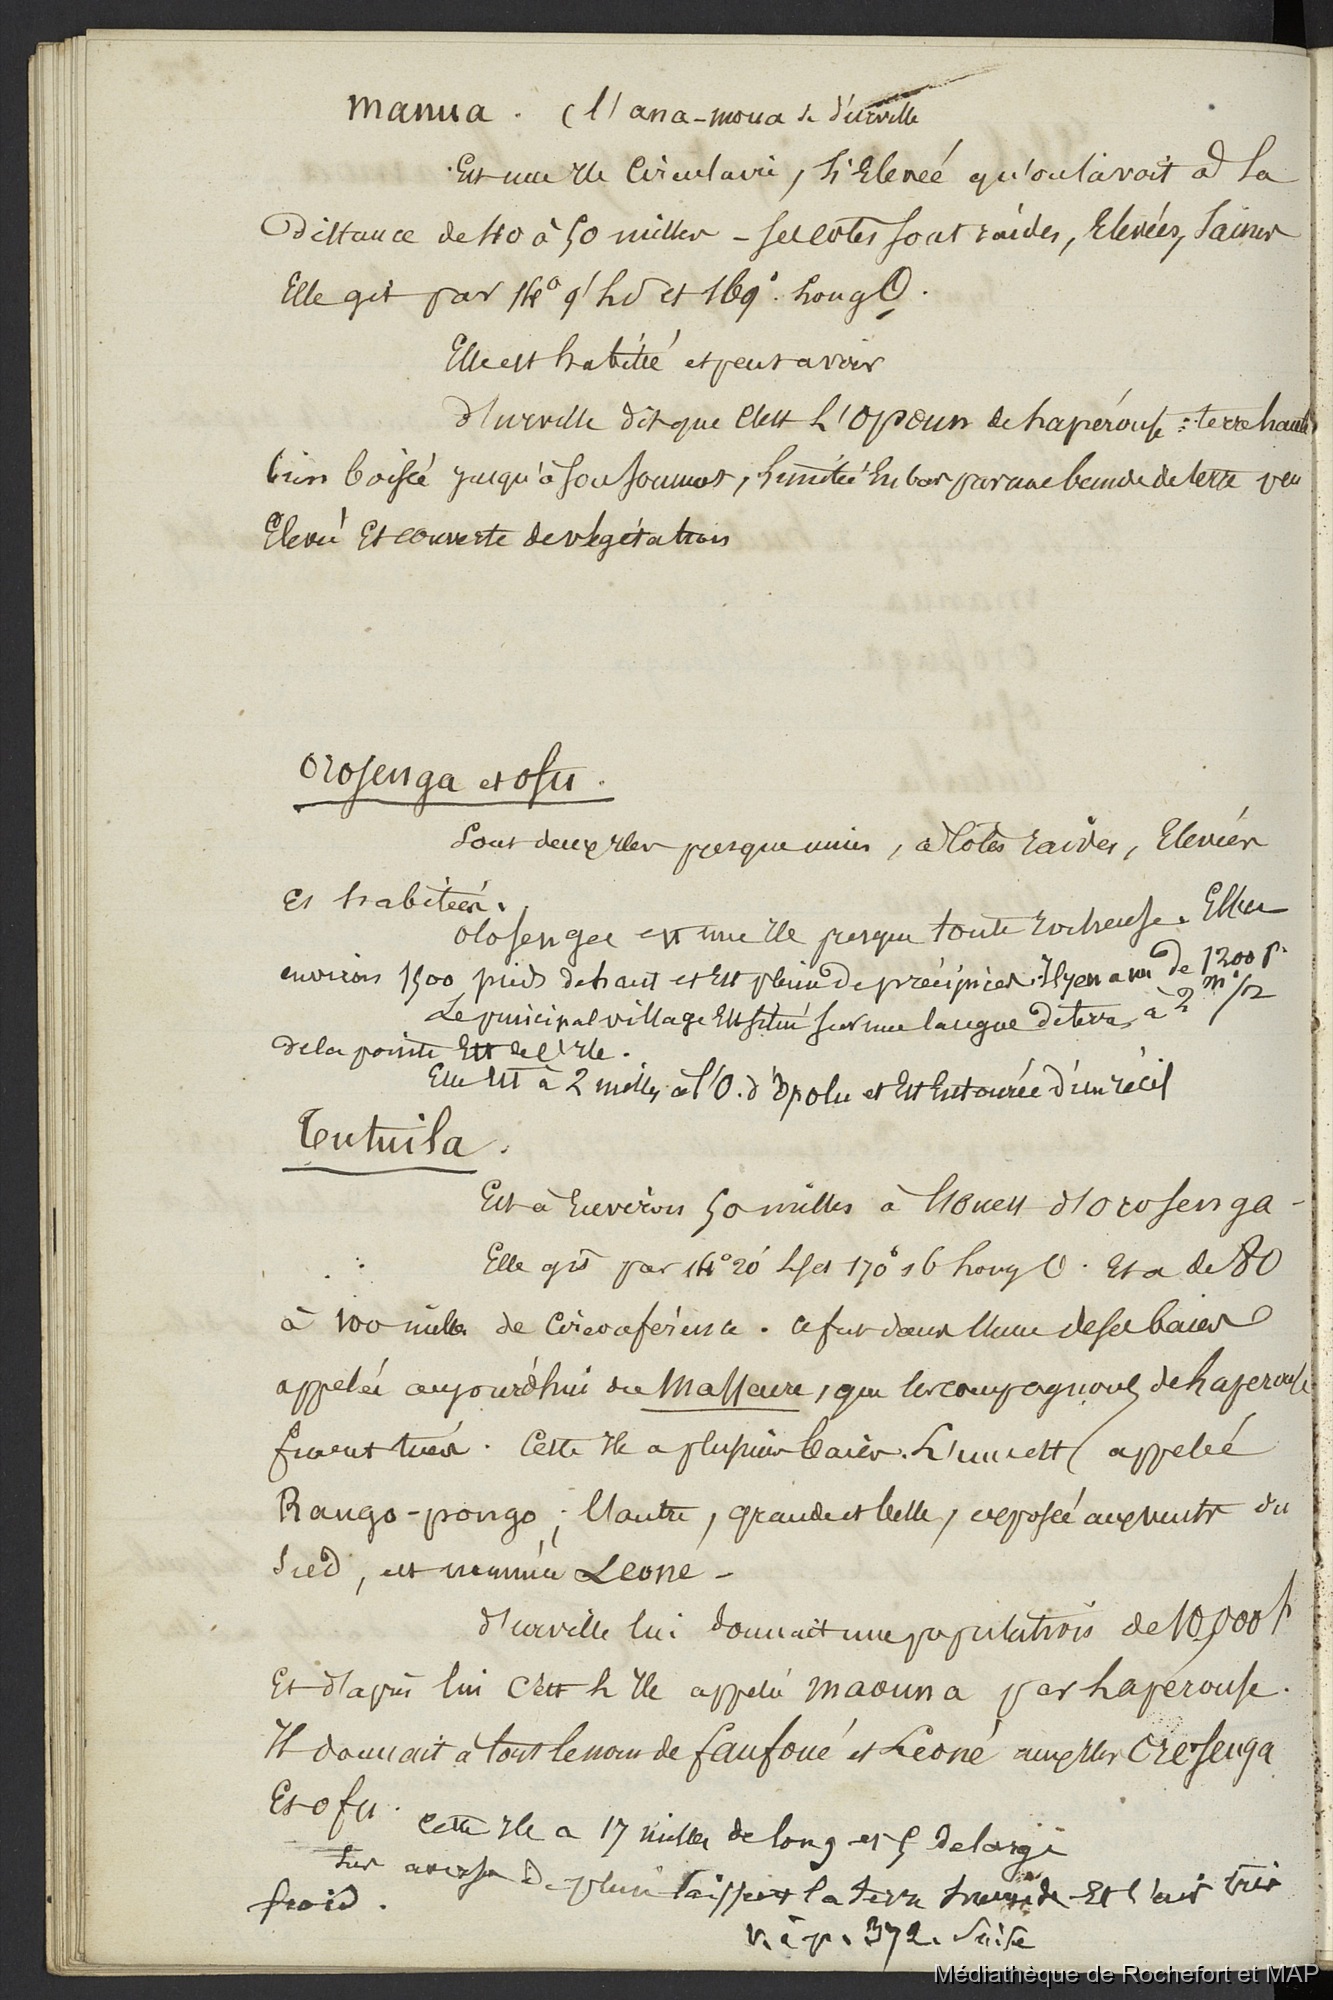 Manua. (l'ana-moua de d'urville
Est une Ile Circulaire, si Elevée qu'on la voit à la
distance de 40 à 50 milles - ses cotes sont raides, Elevées, saines
Elle git par 14° 9' lS et 169° Long O.
Elle est habitée et peut avoir
d'urville dit que c'est l'Opoun de Lapérouse : terre haute
bien boisée jusqu'à son sommet, limitée En bas par une bande de terre peu
Elevée Et couverte de végétation
Orosenga et ofu.
Sont deux Iles presque unies, à Côtes raides, Elevées
Et habitées.
olosenga est une Ile presque toute rocheuse. Elle a
environ 1500 pieds de haut et Est pleine de précipices. Il y en a un de 1200 p.
Le principal village Est situé sur une langue de terre, à 2 m 1/2
de la pointe Est de l'Ile.
Elle Est à 2 milles à l'O. d'Opolu et Est Entourée d'un récif
Tutuila.
Est à Environ 50 milles à l'Ouest d'Orosenga -
Elle git par 14° 20' L S et 170° 16 Long O. Et a de 80
à 100 milles de Circonférence. Ce fut dans l'une de ses baies
appelée aujourd'hui du Massacre, que les compagnons de Laperouse
furent tués. Cette Ile a plusieurs baies. L'une est appelée
Pango-pongo ; l'autre, grande et belle, exposée aux vents du
Sud, est nommée Leone -
d'urville lui donnait une population de 10,000 h
Et d'après lui C'est l'Ile appelée maouna par Laperouse.
Il donnait à tort le nom de fanfoué et Leoné aux Iles Orosenga
Et ofu. Cette Ile a 17 milles de long et 5 de large
Les averses de pluie laissent la terre humide Et l'air très
froid.
V. à p. 372. Suite
Médiathèque de Rochefort et MAP